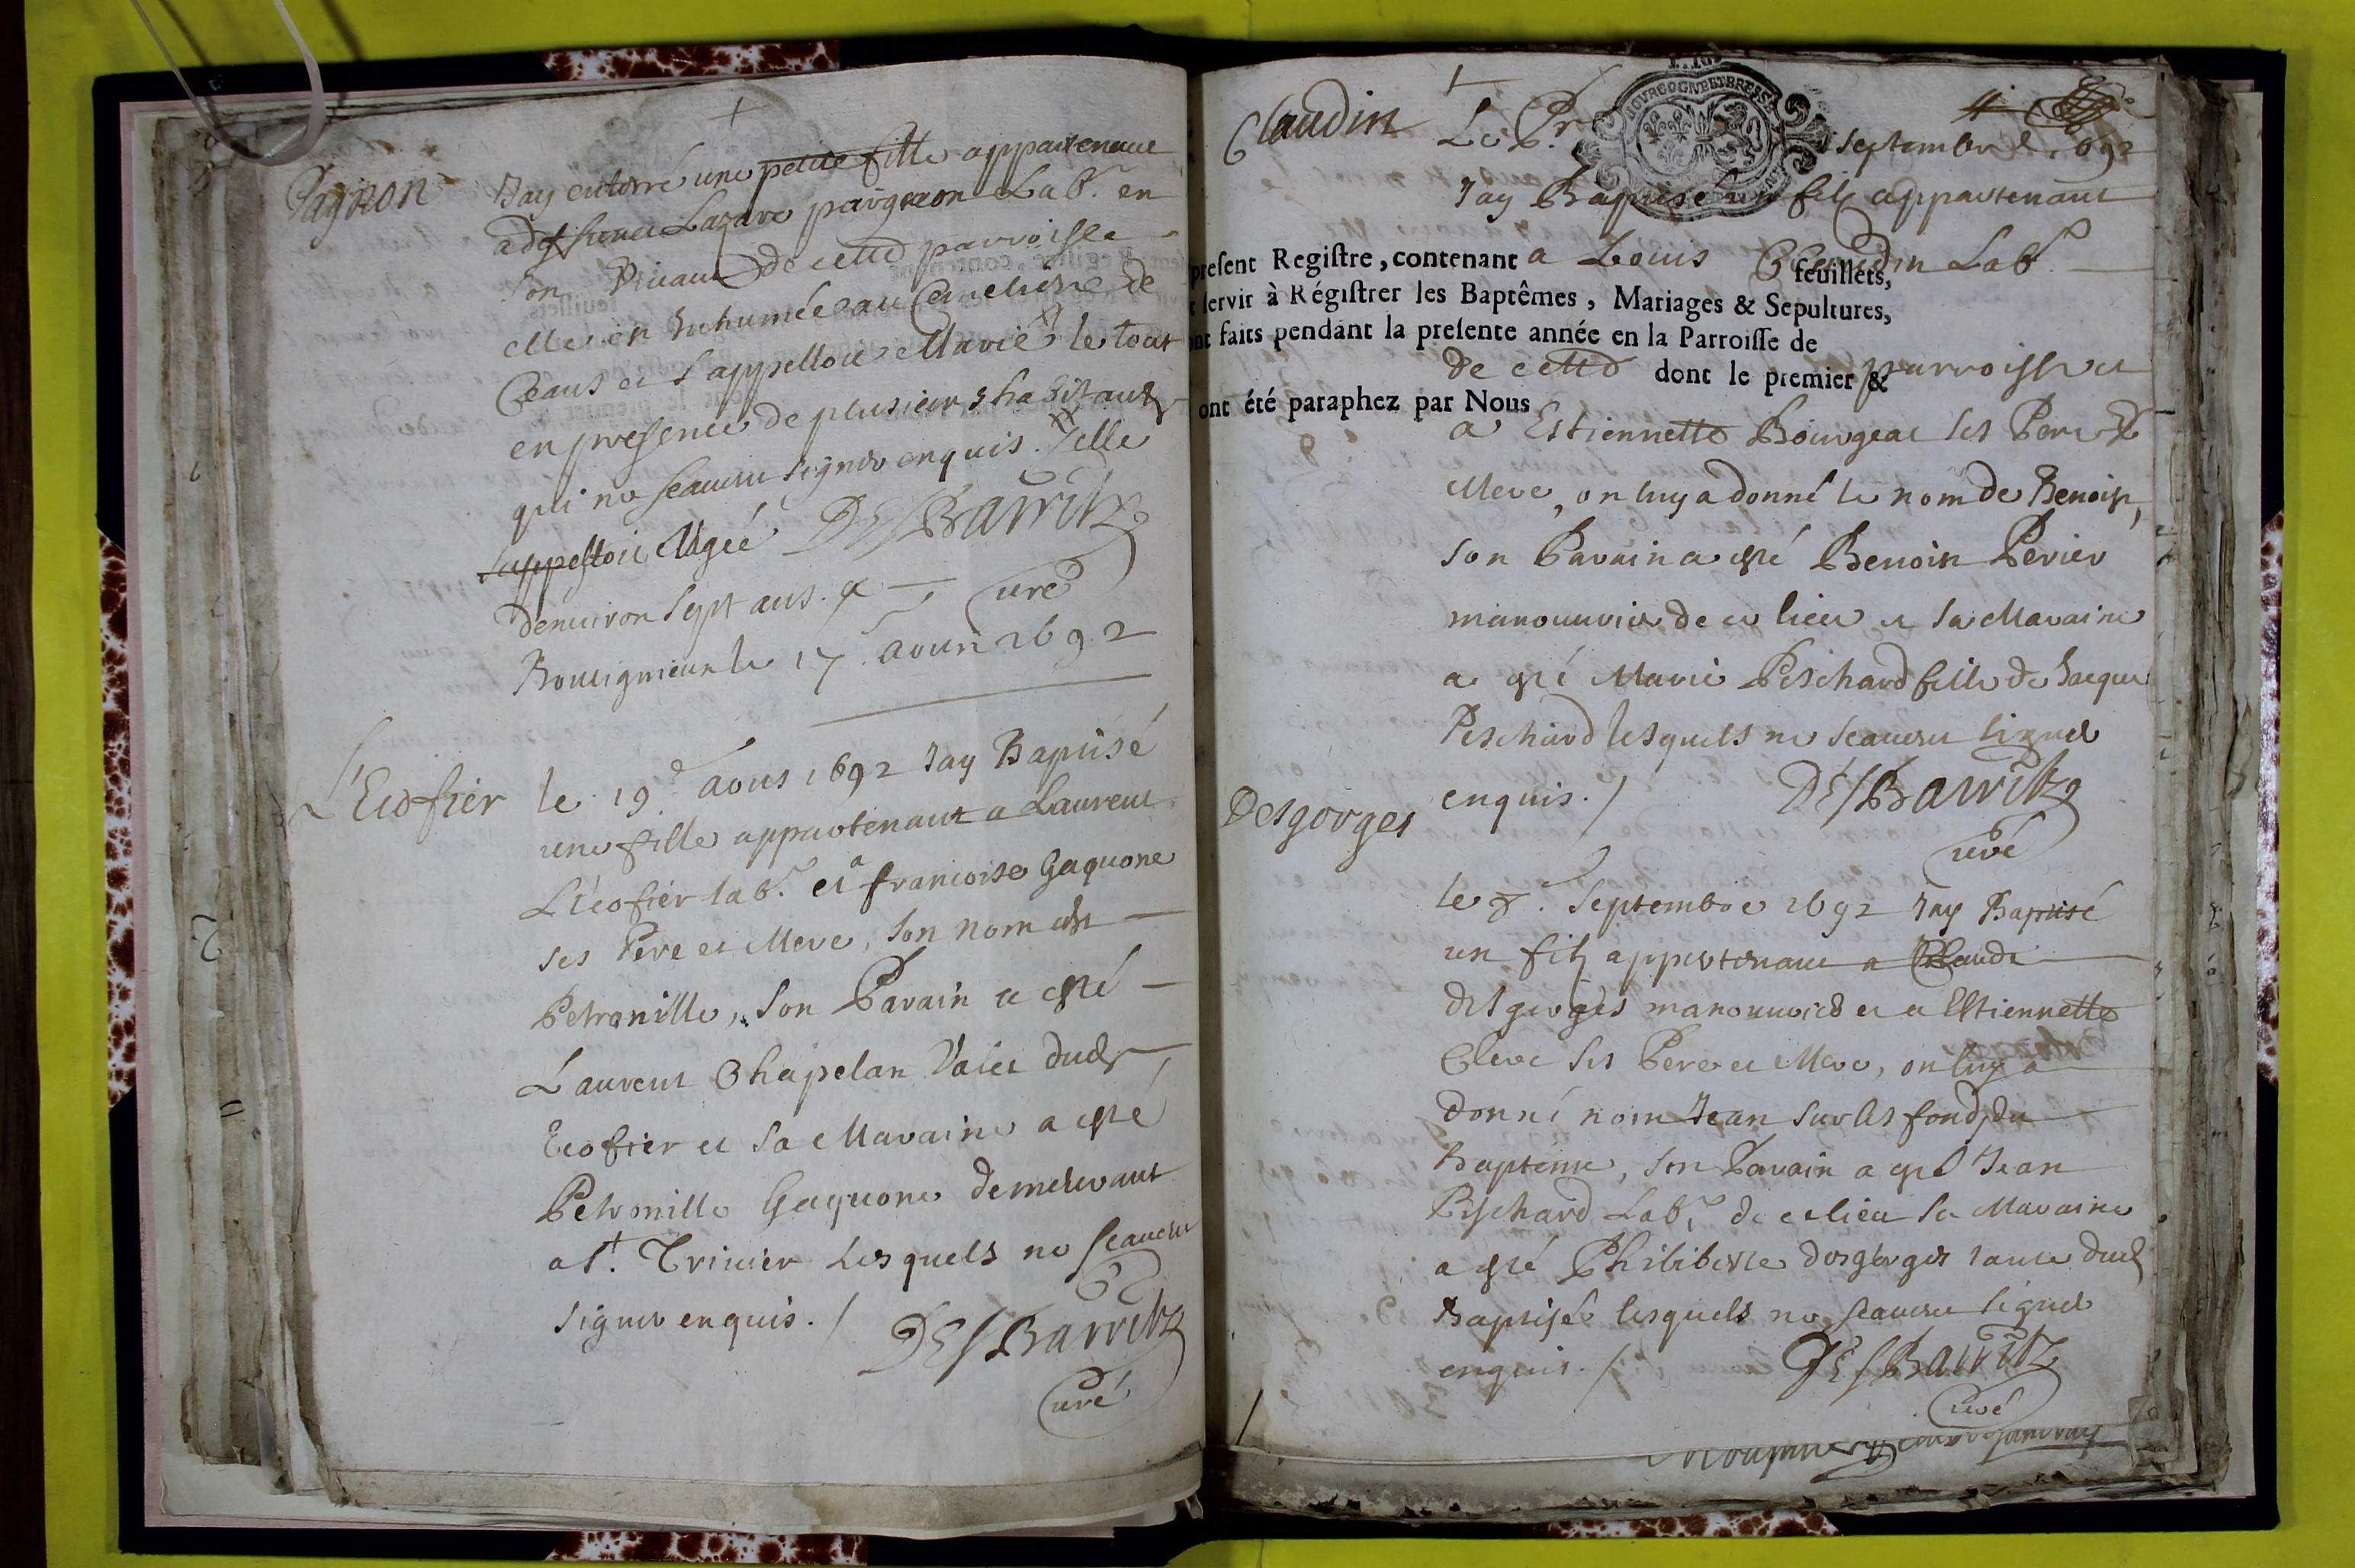 Pagnon
Jay enterré une petite fille appartenant
a deffunct Lazare paignon Lab.r en
son vivant de cette parroisse
elle est Inhumée au Cemetiere de
Ceans et s'appelloit Marie le tout
en presence de plusieurs habitants
qui ne scavent signer enquis. elle
s'appelloit Agée DESBarritz
denviron sept ans. curé
le 17 aoust 1692
L'Ecofier
le 19e aoust 1692 Jay Baptisé
une fille appartenant a Laurent
L'écofier lab.r et a francoise Gaquone
ses Pere et Mere, son nom est
Petronille, son Parain a esté
Laurent Chapelan Valet dudt
Ecofier et sa Maraine a esté
Petronille Gaquone demeurant
a St. Trivier Lesquels ne scavent
signer enquis. / DESBarritz
curé
Claudin
Le Pr septembre 1692
Jay Baptisé un filz appartenant
a Louis Claudin Lab.r
present Registre, contenant feuillets,
servir à Régistrer les Baptêmes, Mariages & Sepultures,
ont faits pendant la presente année en la Parroisse de
de cette parroisse et
dont le premier &
ont été paraphez par Nous
a Estiennette Bourgeat ses Pere et
Mere, on luy a donné le nom de Benoist,
son Parain a esté Benoist Perier
manouvrier de ce lieu et sa Maraine
a esté Marie Peschard fille de Jaque
Peschard lesquels ne scavent signer
enquis. / DESBarritz
curé
Desgorges
le 8. Septembre 1692 Jay Baptisé
un filz appartenant a Claude
desgorges manouvrier et a Estiennette
Clerc ses Pere et Mere, on luy a
donné nom Jean sur les fonds du
Baptême, son Parain a esté Jean
Peschard Lab.r de ce lieu sa Maraine
a esté Philiberte desgorges tante dudt
Baptisé lesquels ne scavent signer
enquis. / DESBarritz
curé